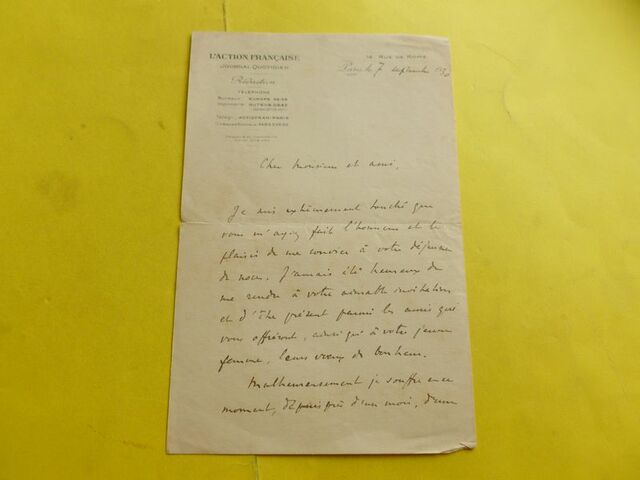 L'ACTION FRANÇAISE
JOURNAL QUOTIDIEN
Rédaction
TÉLÉPHONE
14 RUE DE ROME
Paris le 7 septembre
Cher Monsieur et ami,
Je suis extrêmement touché que
vous m'ayez fait l'honneur et le
plaisir de me convier à votre déjeuner
de noces. J'aurais été heureux de
me rendre à votre aimable invitation
et d'être présent parmi les amis qui
vous offriront, ainsi qu'à votre jeune
femme, leurs vœux de bonheur.
Malheureusement je souffre en ce
moment, depuis près d'un mois, d'une